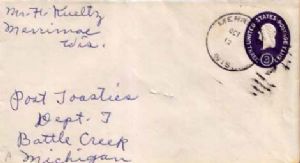 Mr. H. Kueltz
Merrimac
Wis.
MERR
OCT
WIS.
UNITED STATES POSTAGE
3
Post Toasties
Dept. T
Battle Creek
Michigan